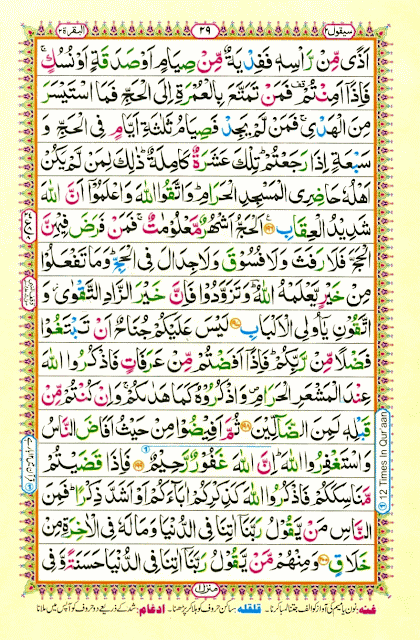 سیقول ٢
٢٩
البقرة ٢
اَذًى مِّنْ رَّاْسِهٖ فَفِدْيَةٌ مِّنْ صِيَامٍ اَوْ صَدَقَةٍ اَوْ نُسُكٍ ۚ
فَاِذَاۤ اَمِنْتُمْ ۥ فَمَنْ تَمَتَّعَ بِالْعُمْرَةِ اِلَى الْحَجِّ فَمَا اسْتَيْسَرَ
مِنَ الْهَدْيِ ۚ فَمَنْ لَّمْ يَجِدْ فَصِيَامُ ثَلٰثَةِ اَيَّامٍ فِى الْحَجِّ وَ
سَبْعَةٍ اِذَا رَجَعْتُمْ ؕ تِلْكَ عَشَرَةٌ كَامِلَةٌ ؕ ذٰلِكَ لِمَنْ لَّمْ يَكُنْ
اَهْلُهٗ حَاضِرِى الْمَسْجِدِ الْحَرَامِ ؕ وَاتَّقُوا اللّٰهَ وَاعْلَمُوْۤا اَنَّ اللّٰهَ
شَدِيْدُ الْعِقَابِ ﴿١٩٦﴾ اَلْحَجُّ اَشْهُرٌ مَّعْلُوْمٰتٌ ۚ فَمَنْ فَرَضَ فِيْهِنَّ
الْحَجَّ فَلَا رَفَثَ وَلَا فُسُوْقَ ۙ وَلَا جِدَالَ فِى الْحَجِّ ؕ وَمَا تَفْعَلُوْا
مِنْ خَيْرٍ يَّعْلَمْهُ اللّٰهُ ؕ وَتَزَوَّدُوْا فَاِنَّ خَيْرَ الزَّادِ التَّقْوٰى ؗ وَ
اتَّقُوْنِ يٰۤاُولِى الْاَلْبَابِ ﴿١٩٧﴾ لَيْسَ عَلَيْكُمْ جُنَاحٌ اَنْ تَبْتَغُوْا
فَضْلًا مِّنْ رَّبِّكُمْ ؕ فَاِذَاۤ اَفَضْتُمْ مِّنْ عَرَفَاتٍ فَاذْكُرُوا اللّٰهَ
عِنْدَ الْمَشْعَرِ الْحَرَامِ ۪ وَاذْكُرُوْهُ كَمَا هَدٰىكُمْ ۚ وَاِنْ كُنْتُمْ مِّنْ
قَبْلِهٖ لَمِنَ الضَّآلِّيْنَ ﴿١٩٨﴾ ثُمَّ اَفِيْضُوْا مِنْ حَيْثُ اَفَاضَ النَّاسُ
وَاسْتَغْفِرُوا اللّٰهَ ؕ اِنَّ اللّٰهَ غَفُوْرٌ رَّحِيْمٌ ﴿١٩٩﴾ فَاِذَا قَضَيْتُمْ
مَّنَاسِكَكُمْ فَاذْكُرُوا اللّٰهَ كَذِكْرِكُمْ اٰبَآءَكُمْ اَوْ اَشَدَّ ذِكْرًا ؕ فَمِنَ
النَّاسِ مَنْ يَّقُوْلُ رَبَّنَاۤ اٰتِنَا فِى الدُّنْيَا وَمَا لَهٗ فِى الْاٰخِرَةِ مِنْ
خَلَاقٍ ﴿٢٠٠﴾ وَمِنْهُمْ مَّنْ يَّقُوْلُ رَبَّنَاۤ اٰتِنَا فِى الدُّنْيَا حَسَنَةً وَّ فِى
12 Times In Qur'aan
منزل ١
غنه: نون یا میم کی آواز کو الف جتنا لمبا کرنا۔ قلقله: ساکن حروف کو ہلا کر پڑھنا۔ ادغام: شد کے ذریعے دو حروف کو آپس میں ملانا